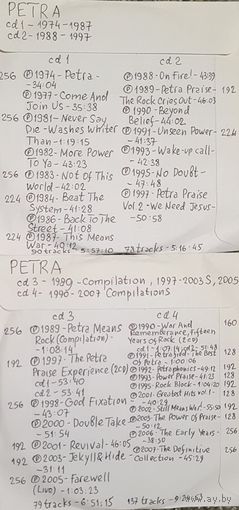 PETRA
cd1 - 1974-1987
cd2 - 1988 - 1997
cd 1
256 ℗1974 - Petra -
- 34:04
℗1977 - Come And
Join Us - 35:38
256 ℗1981 - Never Say
Die - Washes Whiter
Than - 1:19:15
℗1982 - More Power
To Ya - 43:23
256 ℗1983 - Not Of This
World - 42:02
224 ℗1984 - Beat The
System - 41:28
℗1986 - Back To The
Street - 41:08
224 ℗1987 - This Means
War - 40:12
90 tracks - 5:57:10
cd 2
℗1988 - On Fire! - 43:39
℗1989 - Petra Praise - 192
The Rock Cries Out - 46:03
℗1990 - Beyond
Belief - 44:02
℗1991 - Unseen Power - 224
- 41:37
℗1993 - Wake-up call -
- 42:38
℗1995 - No Doubt -
- 47:48
℗1997 - Petra Praise
Vol. 2 - We Need Jesus -
- 50:58
78 tracks - 5:16:45
PETRA
cd 3 - 1989 - Compilation, 1997-2003 S, 2005
cd 4 - 1990-2007 Compilations
cd3
256 ℗1989 - Petra Means
Rock (Compilation) -
- 1:08:14
192 ℗1997 - The Petra
Praise Experience (2CD)
cd1 - 53:40
cd2 - 53:41
256 ℗1998 - God Fixation
- 43:07
℗2000 - Double Take
- 51:54
192 ℗2001 - Revival - 46:05
192 ℗2003 - Jekyll & Hide -
- 31:11
256 ℗2005 - Farewell
(Live) - 1:03:23
79 tracks - 6:51:15
cd4
℗1990 - War And 160
Remembrance, fifteen
Years Of Rock (2CD)
℗1991 - Petrafied: The Best 128
Of Petra - 1:00:06
℗1992 - Petraphonics - 49:12 192
℗1993 - Power Praise - 41:23 128
℗1995 - Rock Block - 1:04:20 192
℗2001 - Greatest Hits vol.1 - 128
- 40:29
℗2002 - Still Means War! - 55:50 192
℗2003 - The Power Of Praise - 128
℗2006 - The Early Years - 256
- 38:50
℗2007 - The Definitive 256
Collection - 45:29
137 tracks
ay.by